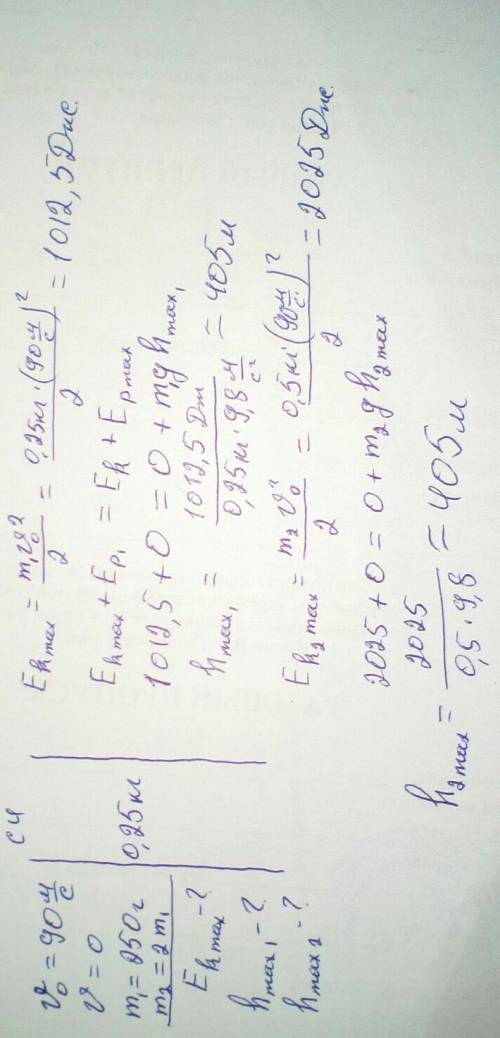 v₀ = 90 м/с
v = 0
m₁ = 250 г
m₂ = 2 m₁
E_k max - ?
h_max₁ - ?
h_max₂ - ?
СИ
0,25 кг
E_k max = m₁v₀²/2 = 0,25кг·(90 м/с)²/2 = 1012,5 Дж.
E_k max + E_p₁ = E_k + E_p max
1012,5 + 0 = 0 + m₁g h_max₁
h_max₁ = 1012,5 Дж/0,25кг·9,8 м/с² = 405 м
E_k₂ max = m₂ v₀²/2 = 0,5кг·(90 м/с)²/2 = 2025 Дж.
2025 + 0 = 0 + m₂ g h₂ max
h₂ max = 2025/0,5·9,8 = 405 м